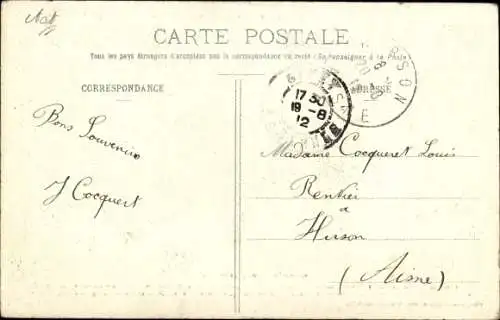 CARTE POSTALE
Tous les pays étrangers n'acceptent pas la correspondance au recto (Se renseigner à la Poste)
CORRESPONDANCE
ADRESSE
17 30
19 - 8
12
Bons Souvenirs
J Cocquert
Madame Cocqueret Louis
Rentier
a
Hirson
(Aisne)